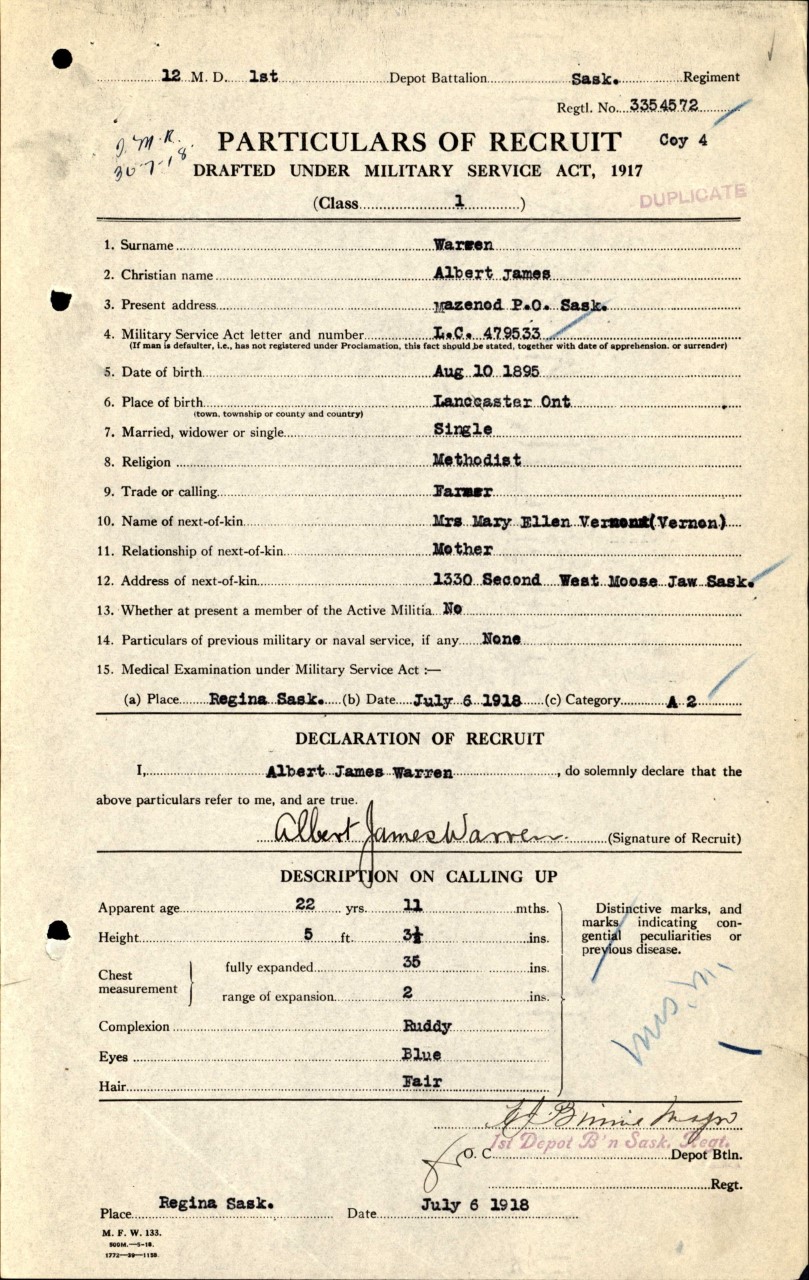 12 M. D. 1st Depot Battalion Sask. Regiment
Regtl. No. 3354572
J.M.R.
30-7-18
PARTICULARS OF RECRUIT Coy 4
DRAFTED UNDER MILITARY SERVICE ACT, 1917
(Class 1)
DUPLICATE
1. Surname Warren
2. Christian name Albert James
3. Present address mazenod P.O. Sask.
4. Military Service Act letter and number L.C. 479533
(If man is defaulter, i.e., has not registered under Proclamation, this fact should be stated, together with date of apprehension. or surrender)
5. Date of birth Aug 10 1895
6. Place of birth Lanccaster Ont
(town, township or county and country)
7. Married, widower or single Single
8. Religion Methodist
9. Trade or calling Farmer
10. Name of next-of-kin Mrs Mary Ellen Vermont (Vernon)
11. Relationship of next-of-kin Mother
12. Address of next-of-kin 1330 Second West Moose Jaw Sask.
13. Whether at present a member of the Active Militia No
14. Particulars of previous military or naval service, if any None
15. Medical Examination under Military Service Act :—
(a) Place Regina Sask. (b) Date July 6 1918 (c) Category A 2
DECLARATION OF RECRUIT
I, Albert James Warren, do solemnly declare that the
above particulars refer to me, and are true.
Albert James Warren (Signature of Recruit)
DESCRIPTION ON CALLING UP
Apparent age 22 yrs. 11 mths.
Height 5 ft. 3½ ins.
Chest measurement
fully expanded 35 ins.
range of expansion 2 ins.
Complexion Ruddy
Eyes Blue
Hair Fair
Distinctive marks, and
marks indicating con-
genital peculiarities or
previous disease.
Binnie Major
1st Depot B'n Sask. Regt.
O. C. Depot Btln.
Regt.
Place Regina Sask. Date July 6 1918
M. F. W. 133.
500M.—5-18.
1772—39—1158.